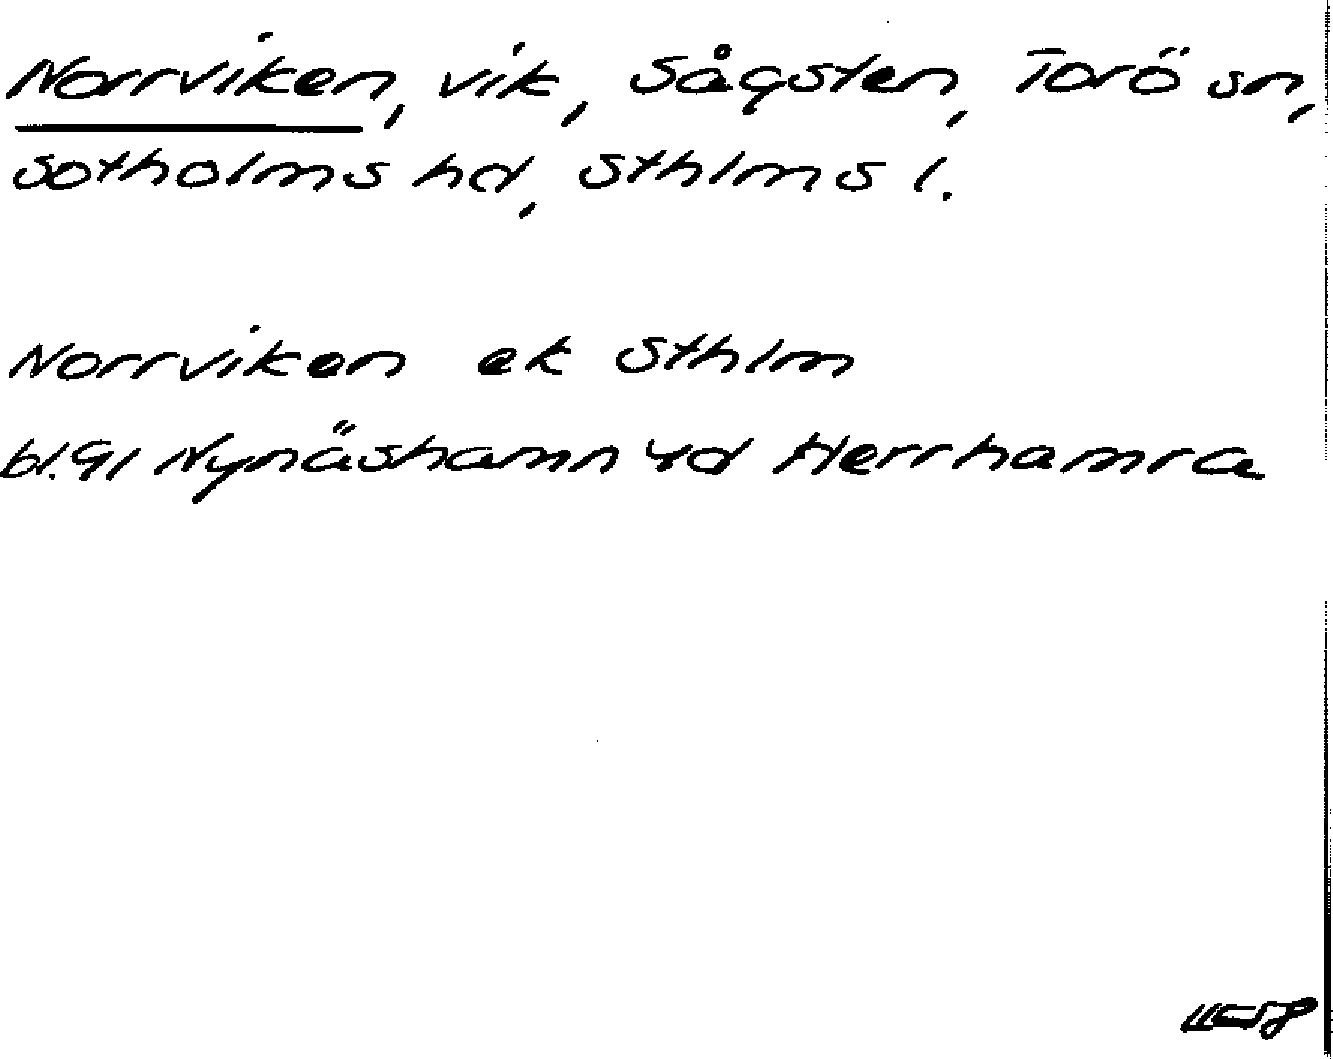 Norrviken, vik, Sågsten, Torö sn,
Sotholms hd, Sthlms l.
Norrviken ek Sthlm
bl. 91 Nynäshamn 4d Herrhamra